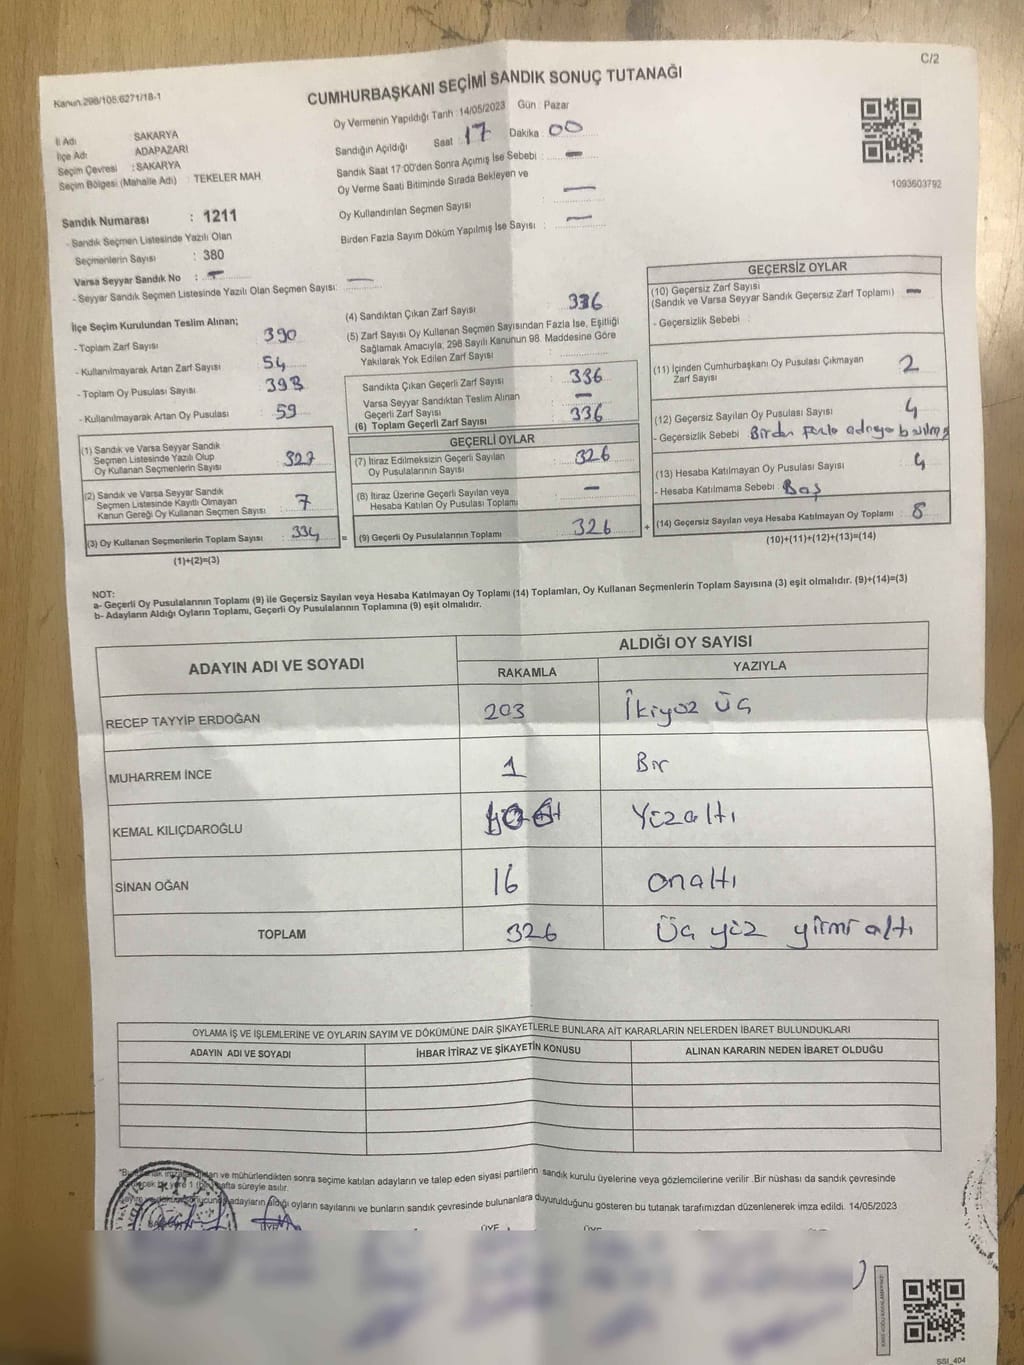 C/2
Kanun:298/105:6271/18-1
CUMHURBAŞKANI SEÇİMİ SANDIK SONUÇ TUTANAĞI
İl Adı SAKARYA
İlçe Adı ADAPAZARI
Seçim Çevresi : SAKARYA
Seçim Bölgesi (Mahalle Adı) : TEKELER MAH
Oy Vermenin Yapıldığı Tarih :14/05/2023 Gün : Pazar
Sandığın Açıldığı Saat : 17 Dakika : 00
Sandık Saat 17:00'den Sonra Açımış İse Sebebi : -
Oy Verme Saati Bitiminde Sırada Bekleyen ve
Oy Kullandırılan Seçmen Sayısı : -
Birden Fazla Sayım Döküm Yapılmış İse Sayısı : -
1093603792
Sandık Numarası : 1211
- Sandık Seçmen Listesinde Yazılı Olan
Seçmenlerin Sayısı : 380
Varsa Seyyar Sandık No : -
- Seyyar Sandık Seçmen Listesinde Yazılı Olan Seçmen Sayısı: -
İlçe Seçim Kurulundan Teslim Alınan;
- Toplam Zarf Sayısı : 390
- Kullanılmayarak Artan Zarf Sayısı : 54
- Toplam Oy Pusulası Sayısı : 393
- Kullanılmayarak Artan Oy Pusulası : 59
(1) Sandık ve Varsa Seyyar Sandık
Seçmen Listesinde Yazılı Olup
Oy Kullanan Seçmenlerin Sayısı : 327
(2) Sandık ve Varsa Seyyar Sandık
Seçmen Listesinde Kayıtlı Olmayan
Kanun Gereği Oy Kullanan Seçmen Sayısı : 7
(3) Oy Kullanan Seçmenlerin Toplam Sayısı : 334 =
(1)+(2)=(3)
(4) Sandıktan Çıkan Zarf Sayısı : 336
(5) Zarf Sayısı Oy Kullanan Seçmen Sayısından Fazla İse, Eşitliği
Sağlamak Amacıyla; 298 Sayılı Kanunun 98. Maddesine Göre
Yakılarak Yok Edilen Zarf Sayısı :
Sandıkta Çıkan Geçerli Zarf Sayısı : 336
Varsa Seyyar Sandıktan Teslim Alınan
Geçerli Zarf Sayısı : -
(6) Toplam Geçerli Zarf Sayısı : 336
GEÇERLİ OYLAR
(7) İtiraz Edilmeksizin Geçerli Sayılan
Oy Pusulalarının Sayısı : 326
(8) İtiraz Üzerine Geçerli Sayılan veya
Hesaba Katılan Oy Pusulası Toplamı : -
(9) Geçerli Oy Pusulalarının Toplamı : 326 +
GEÇERSİZ OYLAR
(10) Geçersiz Zarf Sayısı
(Sandık ve Varsa Seyyar Sandık Geçersiz Zarf Toplamı) : -
- Geçersizlik Sebebi :
(11) İçinden Cumhurbaşkanı Oy Pusulası Çıkmayan
Zarf Sayısı : 2
(12) Geçersiz Sayılan Oy Pusulası Sayısı : 4
- Geçersizlik Sebebi : Birden fazla adaya
(13) Hesaba Katılmayan Oy Pusulası Sayısı : 4
- Hesaba Katılmama Sebebi : Boş
(14) Geçersiz Sayılan veya Hesaba Katılmayan Oy Toplamı : 8
(10)+(11)+(12)+(13)=(14)
NOT:
a- Geçerli Oy Pusulalarının Toplamı (9) ile Geçersiz Sayılan veya Hesaba Katılmayan Oy Toplamı (14) Toplamları, Oy Kullanan Seçmenlerin Toplam Sayısına (3) eşit olmalıdır. (9)+(14)=(3)
b- Adayların Aldığı Oyların Toplamı, Geçerli Oy Pusulalarının Toplamına (9) eşit olmalıdır.
ADAYIN ADI VE SOYADI
ALDIĞI OY SAYISI
RAKAMLA YAZIYLA
RECEP TAYYİP ERDOĞAN 203 İkiyüz Üç
MUHARREM İNCE 1 Bir
KEMAL KILIÇDAROĞLU 106 Yüzaltı
SİNAN OĞAN 16 onaltı
TOPLAM 326 Üç yüz yirmi altı
OYLAMA İŞ VE İŞLEMLERİNE VE OYLARIN SAYIM VE DÖKÜMÜNE DAİR ŞİKAYETLERLE BUNLARA AİT KARARLARIN NELERDEN İBARET BULUNDUKLARI
ADAYIN ADI VE SOYADI İHBAR İTİRAZ VE ŞİKAYETİN KONUSU ALINAN KARARIN NEDEN İBARET OLDUĞU
ve mühürlendikten sonra seçime katılan adayların ve talep eden siyasi partilerin sandık kurulu üyelerine veya gözlemcilerine verilir. Bir nüshası da sandık çevresinde
yere 1 hafta süreyle asılır.
adayların aldığı oyların sayılarını ve bunların sandık çevresinde bulunanlara duyurulduğunu gösteren bu tutanak tarafımızdan düzenlenerek imza edildi. 14/05/2023
ÜYE
SSİ_404